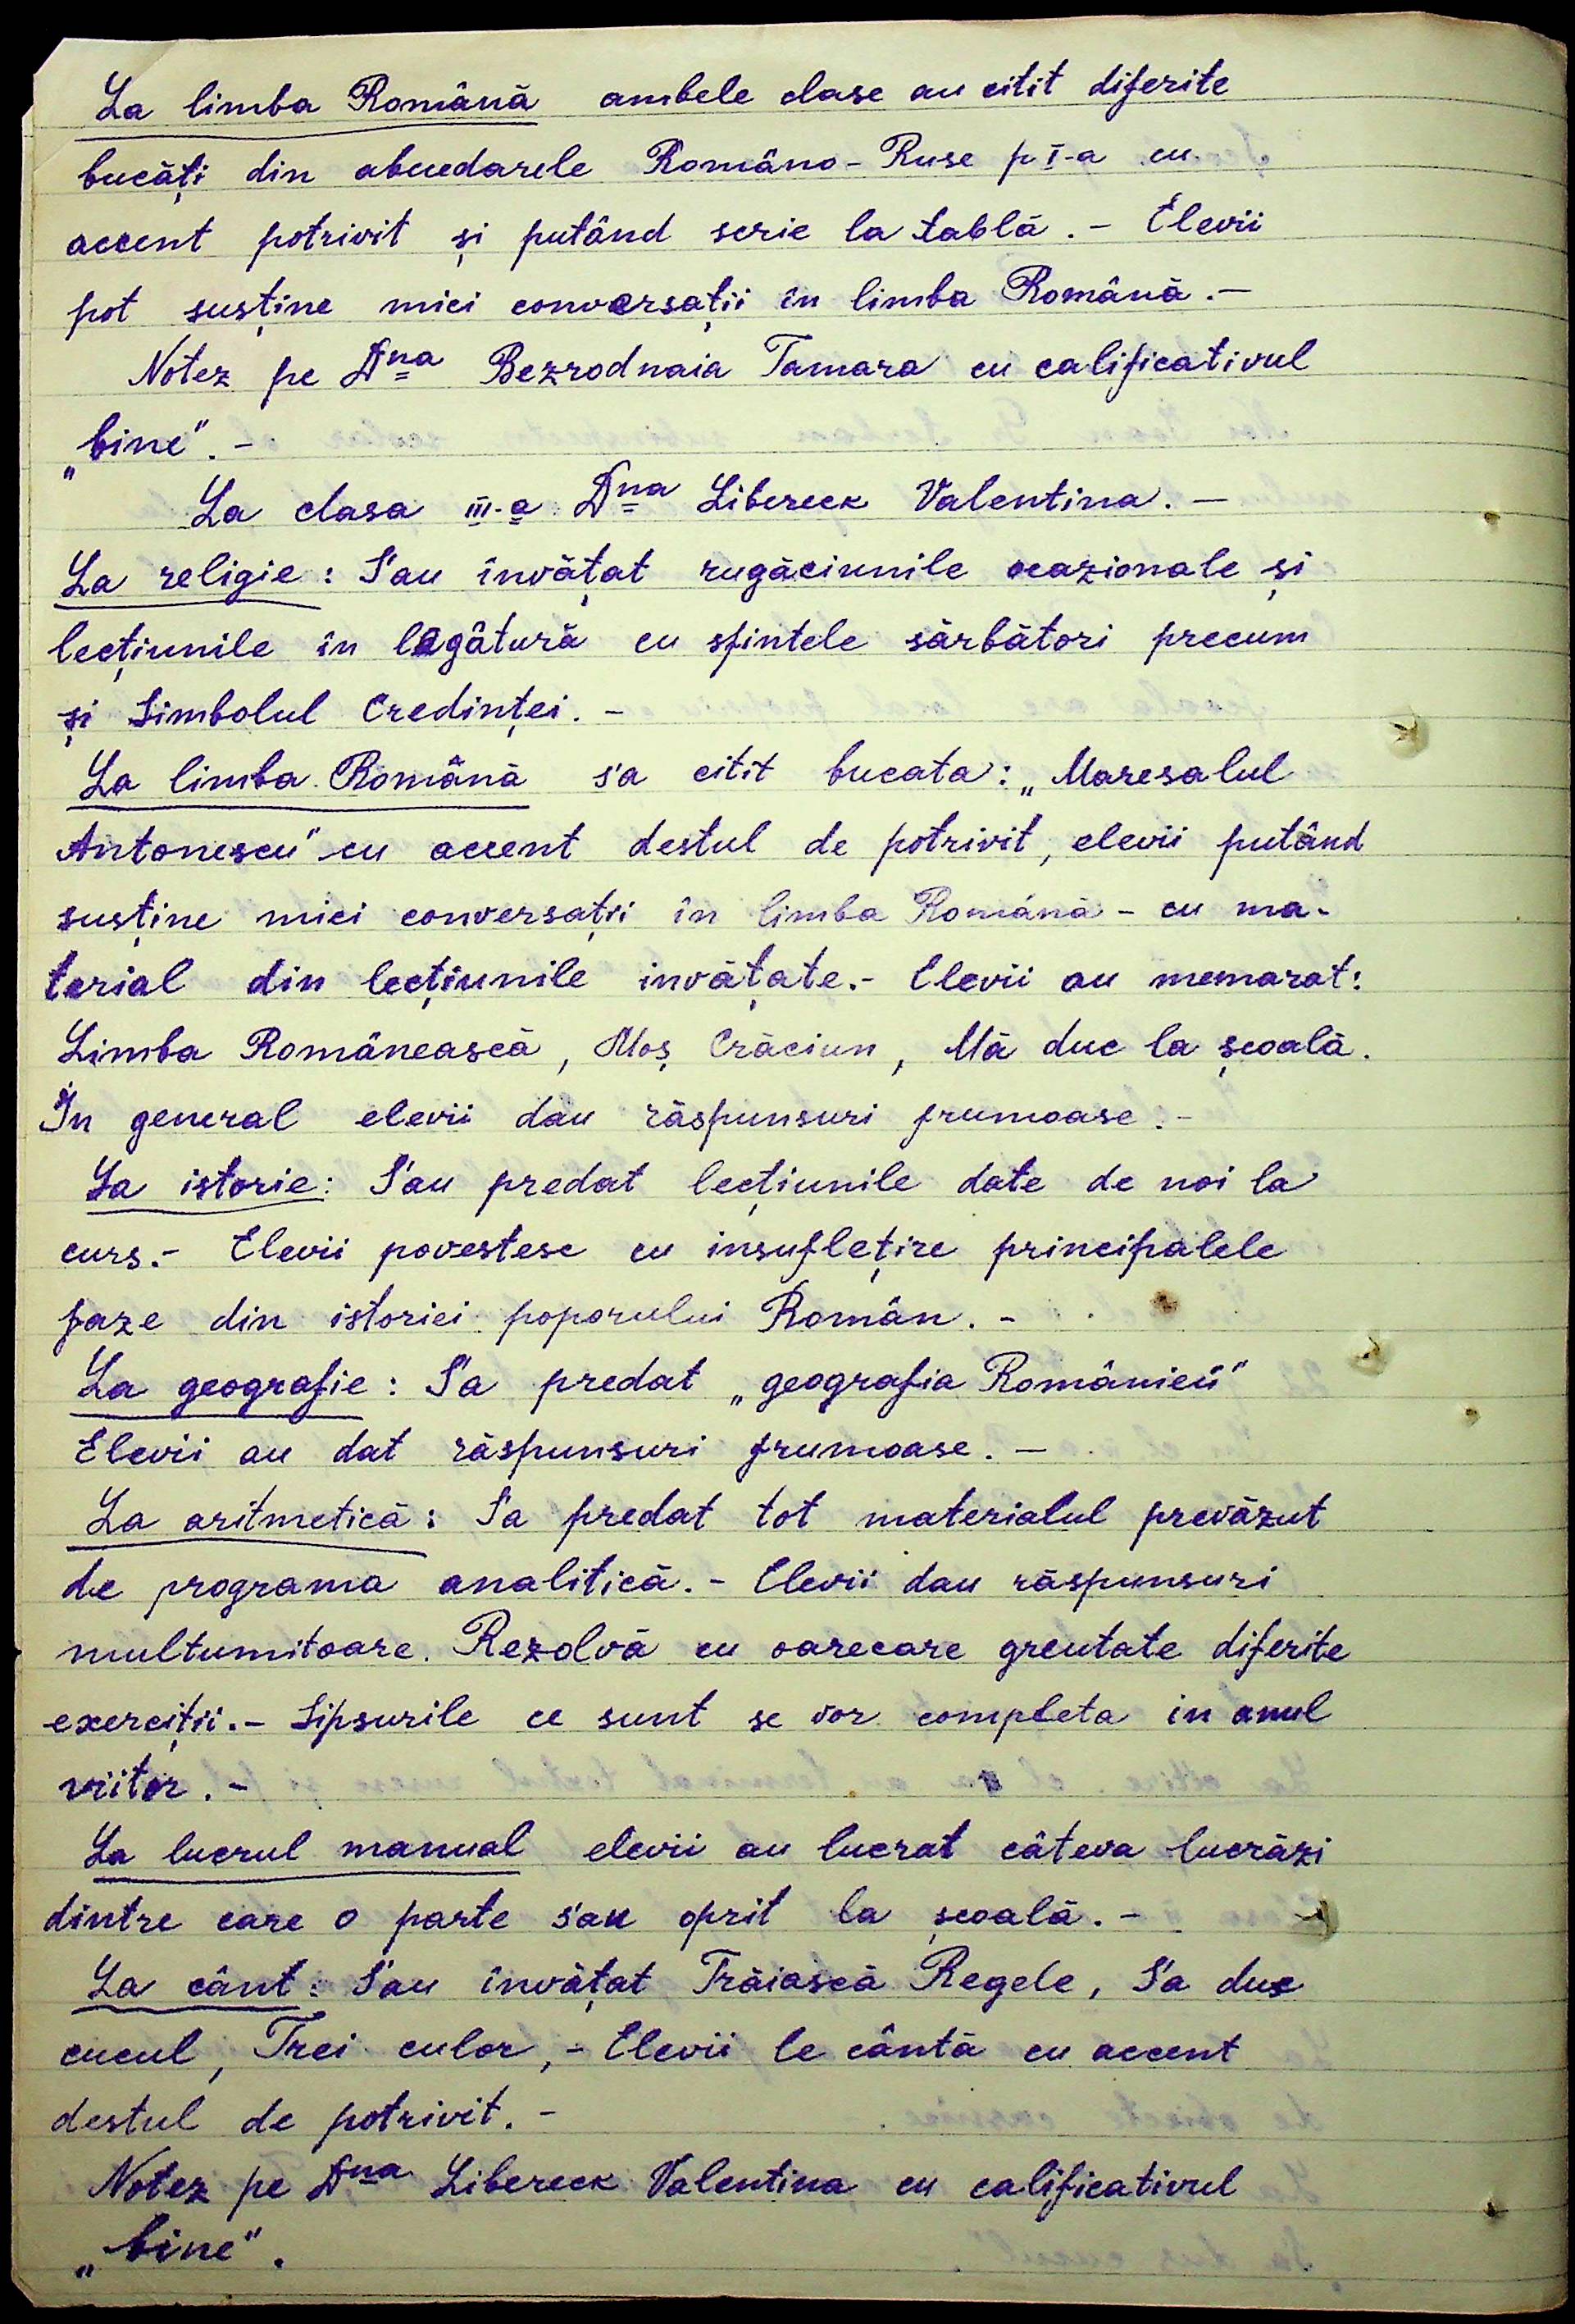 La limba Română ambele clase au citit diferite
bucăți din abucedarele Româno-Ruse p I-a cu
accent potrivit și putând scrie la tablă. - Elevii
pot susține mici conversații în limba Română. -
Notez pe Dna Bezrodnaia Tamara cu calificativul
„bine". -
La clasa III-a Dna Libereck Valentina. -
La religie: S'au învățat rugăciunile ocazionale și
lecțiunile în legătură cu sfintele sărbători precum
și Simbolul Credinței. -
La limba Română s'a citit bucata: „Maresalul
Antonescu" cu accent destul de potrivit, elevii putând
susține mici conversații în limba Română - cu ma-
terial din lecțiunile invățate. - Elevii au memarat:
Limba Românească, Moș Crăciun, Mă duc la școală.
În general elevii dau răspunsuri frumoase. -
La istorie: S'au predat lecțiunile date de noi la
curs. - Elevii povestesc cu insuflețire principalele
faze din istoriei poporului Român. -
La geografie: S'a predat „geografia României"
Elevii au dat răspunsuri frumoase. -
La aritmetică: S'a predat tot materialul prevăzut
de programa analitică. - Elevii dau răspunsuri
multumitoare. Rezolvă cu oarecare greutate diferite
exerciții. - Lipsurile ce sunt se vor completa in anul
viitor. -
La lucrul manual elevii au lucrat câteva lucrări
dintre care o parte s'au oprit la școală. -
La cânt: S'au învățat Trăiască Regele, S'a dus
cucul, Trei culor, - Elevii le cântă cu accent
destul de potrivit. -
Notez pe Dna Libereck Valentina cu calificativul
„bine".